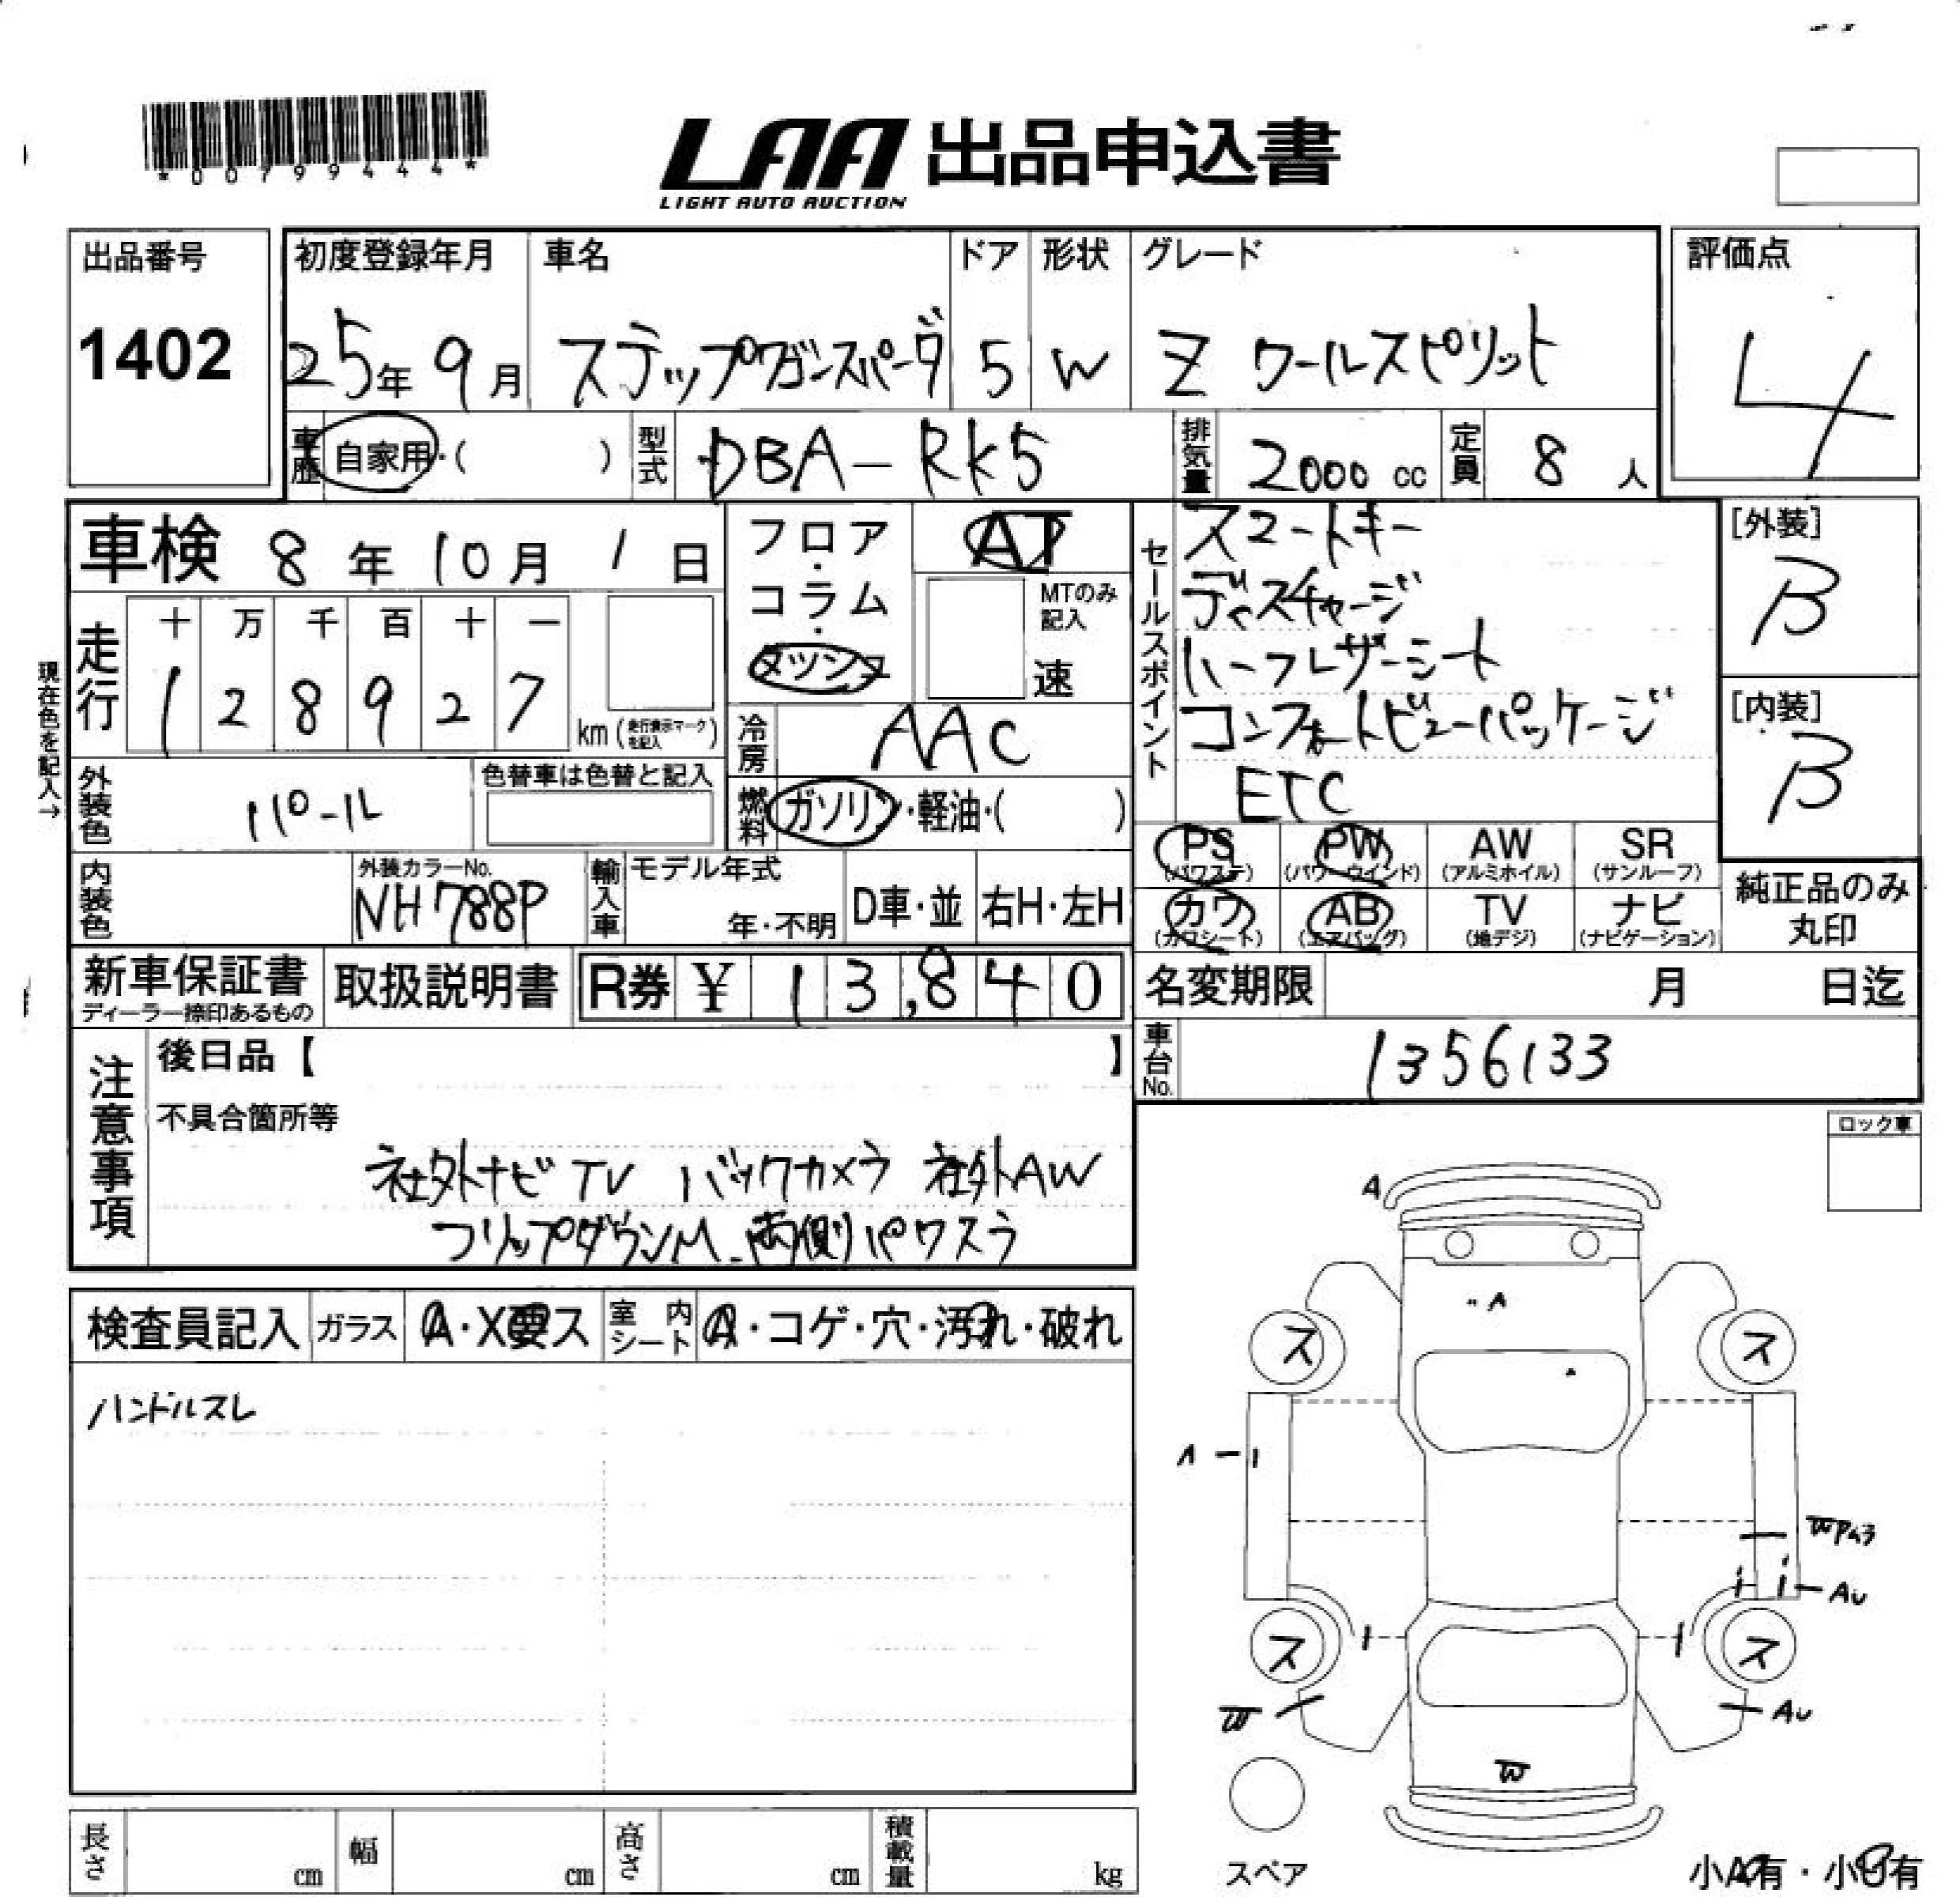 *00799444*
LAA 出品申込書
LIGHT AUTO AUCTION
出品番号
1402
初度登録年月
25年 9月
車名
ステップワゴンスパーダ
ドア
5
形状
W
グレード
Z クールスピリット
評価点
4
車歴 自家用・( )
型式 DBA-RK5
排気量 2000 cc
定員 8 人
車検 8年 10月 1日
走行
十 万 千 百 十 一
1 2 8 9 2 7 km (走行表示マークを記入)
現在色を記入→
外装色 パール
色替車は色替と記入
内装色
外装カラーNo.
NH788P
フロア・コラム・
AT
MTのみ記入
速
冷房 AAC
燃料 ガソリン・軽油・( )
輸入車
モデル年式
年・不明
D車・並
右H・左H
セールスポイント
スマートキー
ディスチャージ
ハーフレザーシート
コンフォートビューパッケージ
ETC
[外装]
B
[内装]
B
PS (パワステ)
PW (パワーウインド)
AW (アルミホイル)
SR (サンルーフ)
カワ (カワシート)
AB (エアバッグ)
TV (地デジ)
ナビ (ナビゲーション)
純正品のみ
丸印
新車保証書
ディーラー捺印あるもの
取扱説明書
R券 ¥ 13,840
名変期限 月 日迄
車台No. 1356133
注意事項
後日品【 】
不具合箇所等
社外ナビ TV バックカメラ 社外AW
フリップダウンM 両側パワスラ
ロック車
検査員記入
ガラス A・X要ス
室内シート A・コゲ・穴・汚れ・破れ
ハンドルスレ
A
A
ス
ス
A
W
AU
ス
ス
W
AU
W
スペア
小A有・小U有
長さ cm
幅 cm
高さ cm
積載量 kg